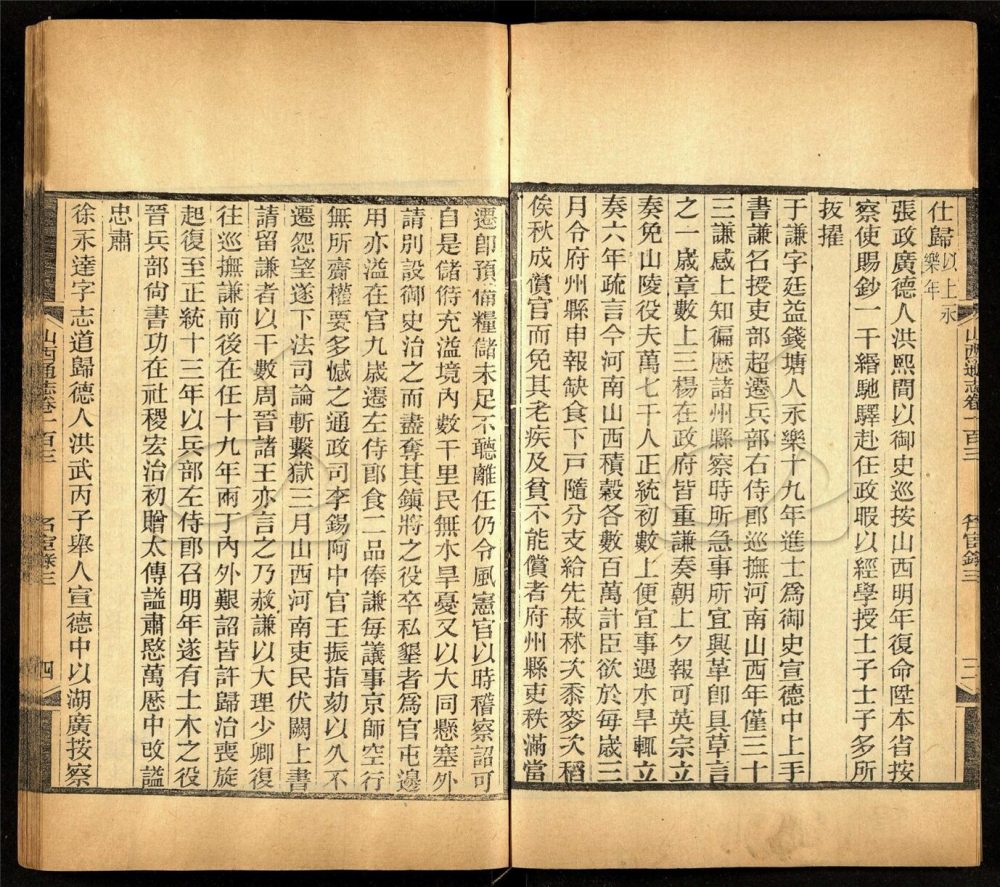 仕歸以上永樂年
張政廣德人洪熙間以御史巡按山西明年復命陞本省按
察使賜鈔一千緡馳驛赴任政暇以經學授士子士子多所
拔擢
于謙字廷益錢塘人永樂十九年進士爲御史宣德中上手
書謙名授吏部超遷兵部右侍郎巡撫河南山西年僅三十
三謙感上知徧歷諸州縣察時所急事所宜興革卽具草言
之一歲章數上三楊在政府皆重謙奏朝上夕報可英宗立
奏免山陵役夫萬七千人正統初數上便宜事遇水旱輒立
奏六年疏言今河南山西積穀各數百萬計臣欲於每歲三
月令府州縣申報缺食下戶隨分支給先菽秫次黍麥次稻
俟秋成償官而免其老疾及貧不能償者府州縣吏秩滿當
山西通志卷一百三 名宦錄三 三
遷卽預備糧儲未足不聽離任仍令風憲官以時稽察詔可
自是儲偫充溢境內數千里民無水旱憂又以大同懸塞外
請別設御史治之而盡奪其鎮將之役卒私墾者爲官屯邊
用亦溢在官九歲遷左侍郎食二品俸謙每議事京師空行
無所齎權要多憾之通政司李錫阿中官王振指劾以久不
遷怨望遂下法司論斬繫獄三月山西河南吏民伏闕上書
請留謙者以千數周晉諸王亦言之乃赦謙以大理少卿復
往巡撫謙前後在任十九年兩丁內外艱詔皆許歸治喪旋
起復至正統十三年以兵部左侍郎召明年遂有土木之役
晉兵部尚書功在社稷宏治初贈太傅謚肅愍萬歷中改謚
忠肅
徐永達字志道歸德人洪武丙子舉人宣德中以湖廣按察
山西通志卷一百三 名宦錄三 四